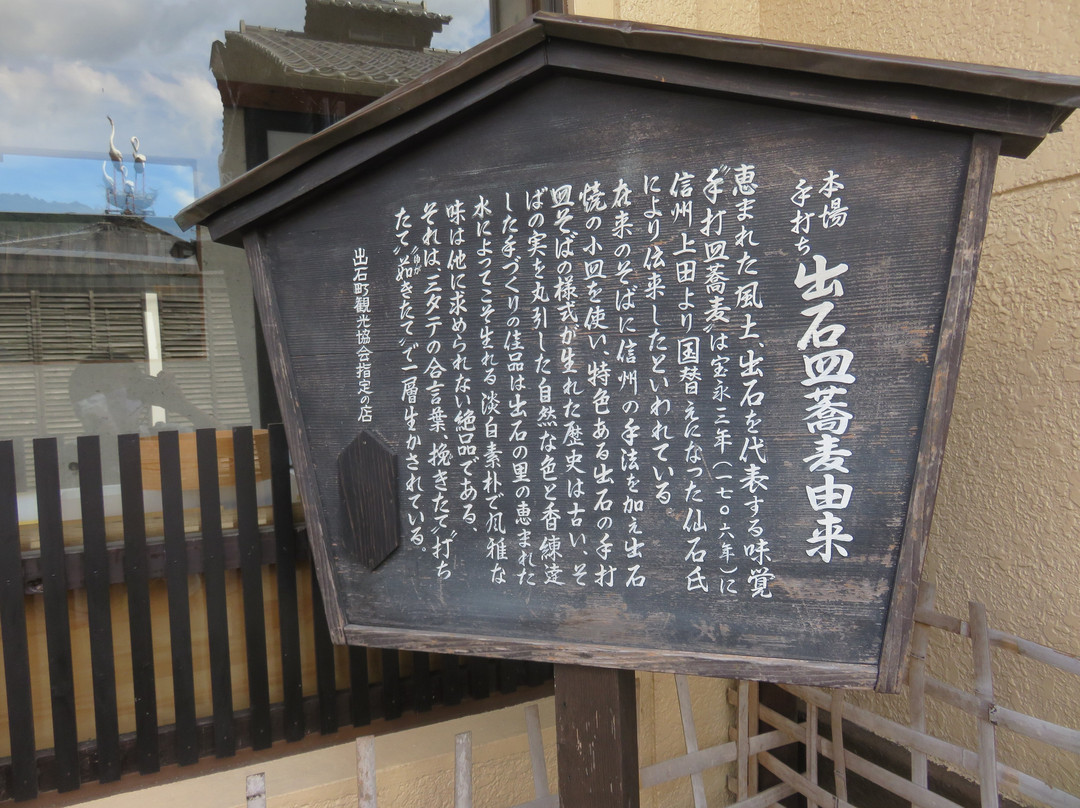 本場
手打ち 出石皿蕎麦由来
恵まれた風土、出石を代表する味覚
〝手打皿蕎麦〟は宝永三年(一七〇六年)に
信州上田より国替えになった仙石氏
により伝来したといわれている。
在来のそばに信州の手法を加え出石
焼の小皿を使い、特色ある出石の手打
皿そばの様式が生れた歴史は古い、そ
ばの実を丸引した自然な色と香練達
した手づくりの佳品は出石の里の恵まれた
水によってこそ生れる淡白素朴で風雅な
味は他に求められない絶品である、
それは、三タテの合言葉、挽きたて〝打ち
たて〝茹きたて〟で一層生かされている。
出石町観光協会指定の店